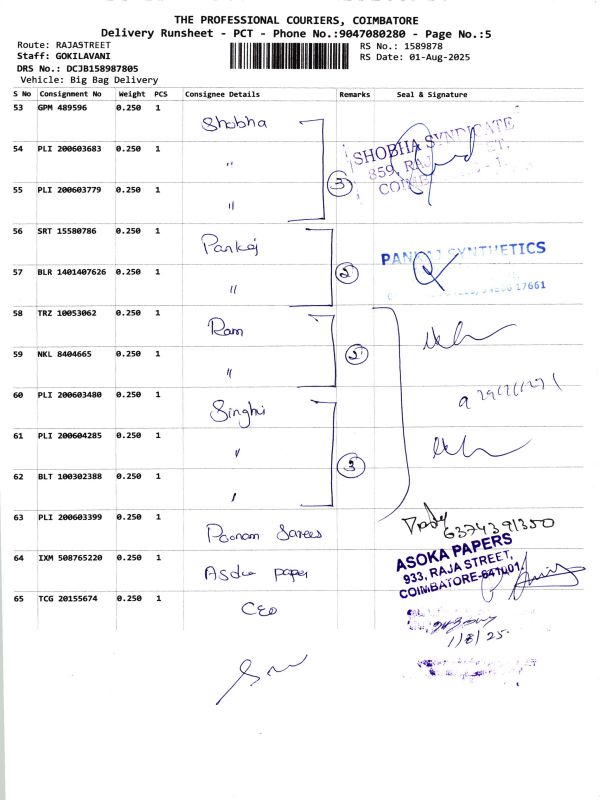 THE PROFESSIONAL COURIERS, COIMBATORE
Delivery Runsheet - PCT - Phone No.:9047080280 - Page No.:5
Route: RAJASTREET RS No.: 1589878
Staff: GOKILAVANI RS Date: 01-Aug-2025
DRS No.: DCJB158987805
Vehicle: Big Bag Delivery
S No Consignment No Weight PCS Consignee Details Remarks Seal & Signature
53 GPM 489596 0.250 1 Shobha
SHOBHA SYNDICATE
54 PLI 200603683 0.250 1 "
859, RAJ
55 PLI 200603779 0.250 1 " 3
56 SRT 15580786 0.250 1 Pankaj
PANKAJ SYNTHETICS
57 BLR 1401407626 0.250 1 " 2
17661
58 TRZ 10053062 0.250 1 Ram
59 NKL 8404665 0.250 1 " 2
60 PLI 200603480 0.250 1 Singhi
61 PLI 200604285 0.250 1 "
62 BLT 100302388 0.250 1 " 3
63 PLI 200603399 0.250 1 Poonam Sarees
6374391350
64 IXM 508765220 0.250 1 Asoka paper
ASOKA PAPERS
933, RAJA STREET,
COIMBATORE-641001.
65 TCG 20155674 0.250 1 CEO
1/8/25